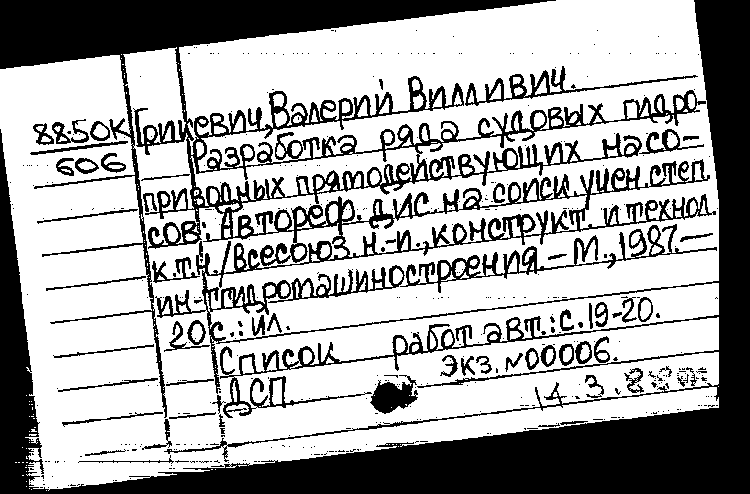 88-50К Гринкевич, Валерий Вилливич.
606 Разработка ряда судовых гидро-
приводных прямодействующих насо-
сов: Автореф. дис. на соиск. учен. степ.
к.т.н. / Всесоюз. н.-и., конструкт. и технол.
ин-т гидромашиностроения. – М., 1987. –
20 с.: ил.
Список работ авт.: с. 19-20.
Экз. N00006.
ДСП.
14.3.88